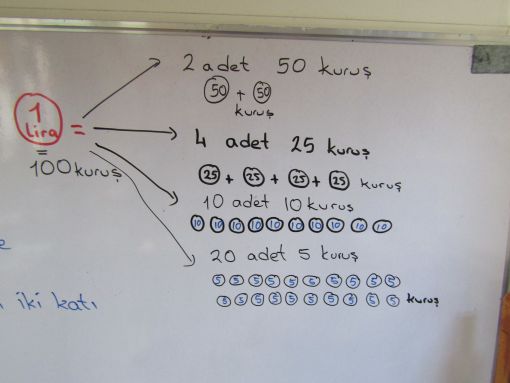 2 adet 50 kuruş
50 + 50
kuruş
1
lira =
=
100 kuruş
4 adet 25 kuruş
25 + 25 + 25 + 25 kuruş
10 adet 10 kuruş
10 10 10 10 10 10 10 10 10 10
20 adet 5 kuruş
5 5 5 5 5 5 5 5 5 5
5 5 5 5 5 5 5 5 5 5 kuruş
iki katı